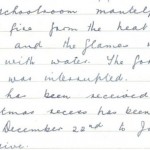 schoolroom mantel
fire from the heat
and the flames
with water. The
was interrupted.
has been received
has been
December 22nd to